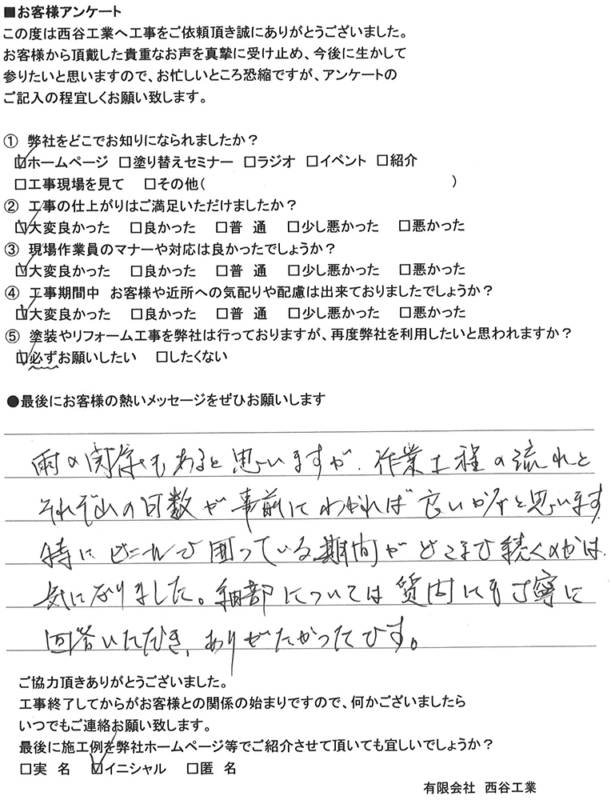 ■お客様アンケート
この度は西谷工業へ工事をご依頼頂き誠にありがとうございました。
お客様から頂戴した貴重なお声を真摯に受け止め、今後に生かして
参りたいと思いますので、お忙しいところ恐縮ですが、アンケートの
ご記入の程宜しくお願い致します。
① 弊社をどこでお知りになられましたか？
☑ホームページ □塗り替えセミナー □ラジオ □イベント □紹介
□工事現場を見て □その他( )
② 工事の仕上がりはご満足いただけましたか？
☑大変良かった □良かった □普 通 □少し悪かった □悪かった
③ 現場作業員のマナーや対応は良かったでしょうか？
☑大変良かった □良かった □普 通 □少し悪かった □悪かった
④ 工事期間中 お客様や近所への気配りや配慮は出来ておりましたでしょうか？
☑大変良かった □良かった □普 通 □少し悪かった □悪かった
⑤ 塗装やリフォーム工事を弊社は行っておりますが、再度弊社を利用したいと思われますか？
☑必ずお願いしたい □したくない
●最後にお客様の熱いメッセージをぜひお願いします
雨の関係もあると思いますが、作業工程の流れと
それぞれの日数が事前にわかれば良いかなと思います
特にビニールで囲っている期間がどこまで続くのかは、
気になりました。細部については質問にも丁寧に
回答いただき、ありがたかったです。
ご協力頂きありがとうございました。
工事終了してからがお客様との関係の始まりですので、何かございましたら
いつでもご連絡お願い致します。
最後に施工例を弊社ホームページ等でご紹介させて頂いても宜しいでしょうか？
□実 名 ☑イニシャル □匿 名
有限会社 西谷工業